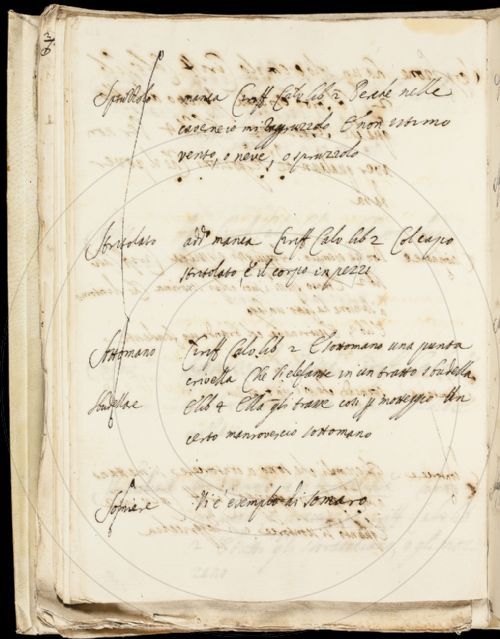 Spruzzolo manca Ciriff. Calv. lib 2 Perche nelle
caverne io mi raggruzzolo E non estimo
vento, o neve, o spruzzolo
Stritolato add. manca Ciriff Calv lib 2 Col capo
stritolato, e il corpo in pezzi
Sottomano Ciriff Calv. lib 2 E sottomano una punta
crivella Che Lielefante in un tratto sbudella
sbudellare E lib 4 Ella gli trasse così p motteggio Un
certo manrovescio sottomano
Somiere Vi è esemplo di somaro